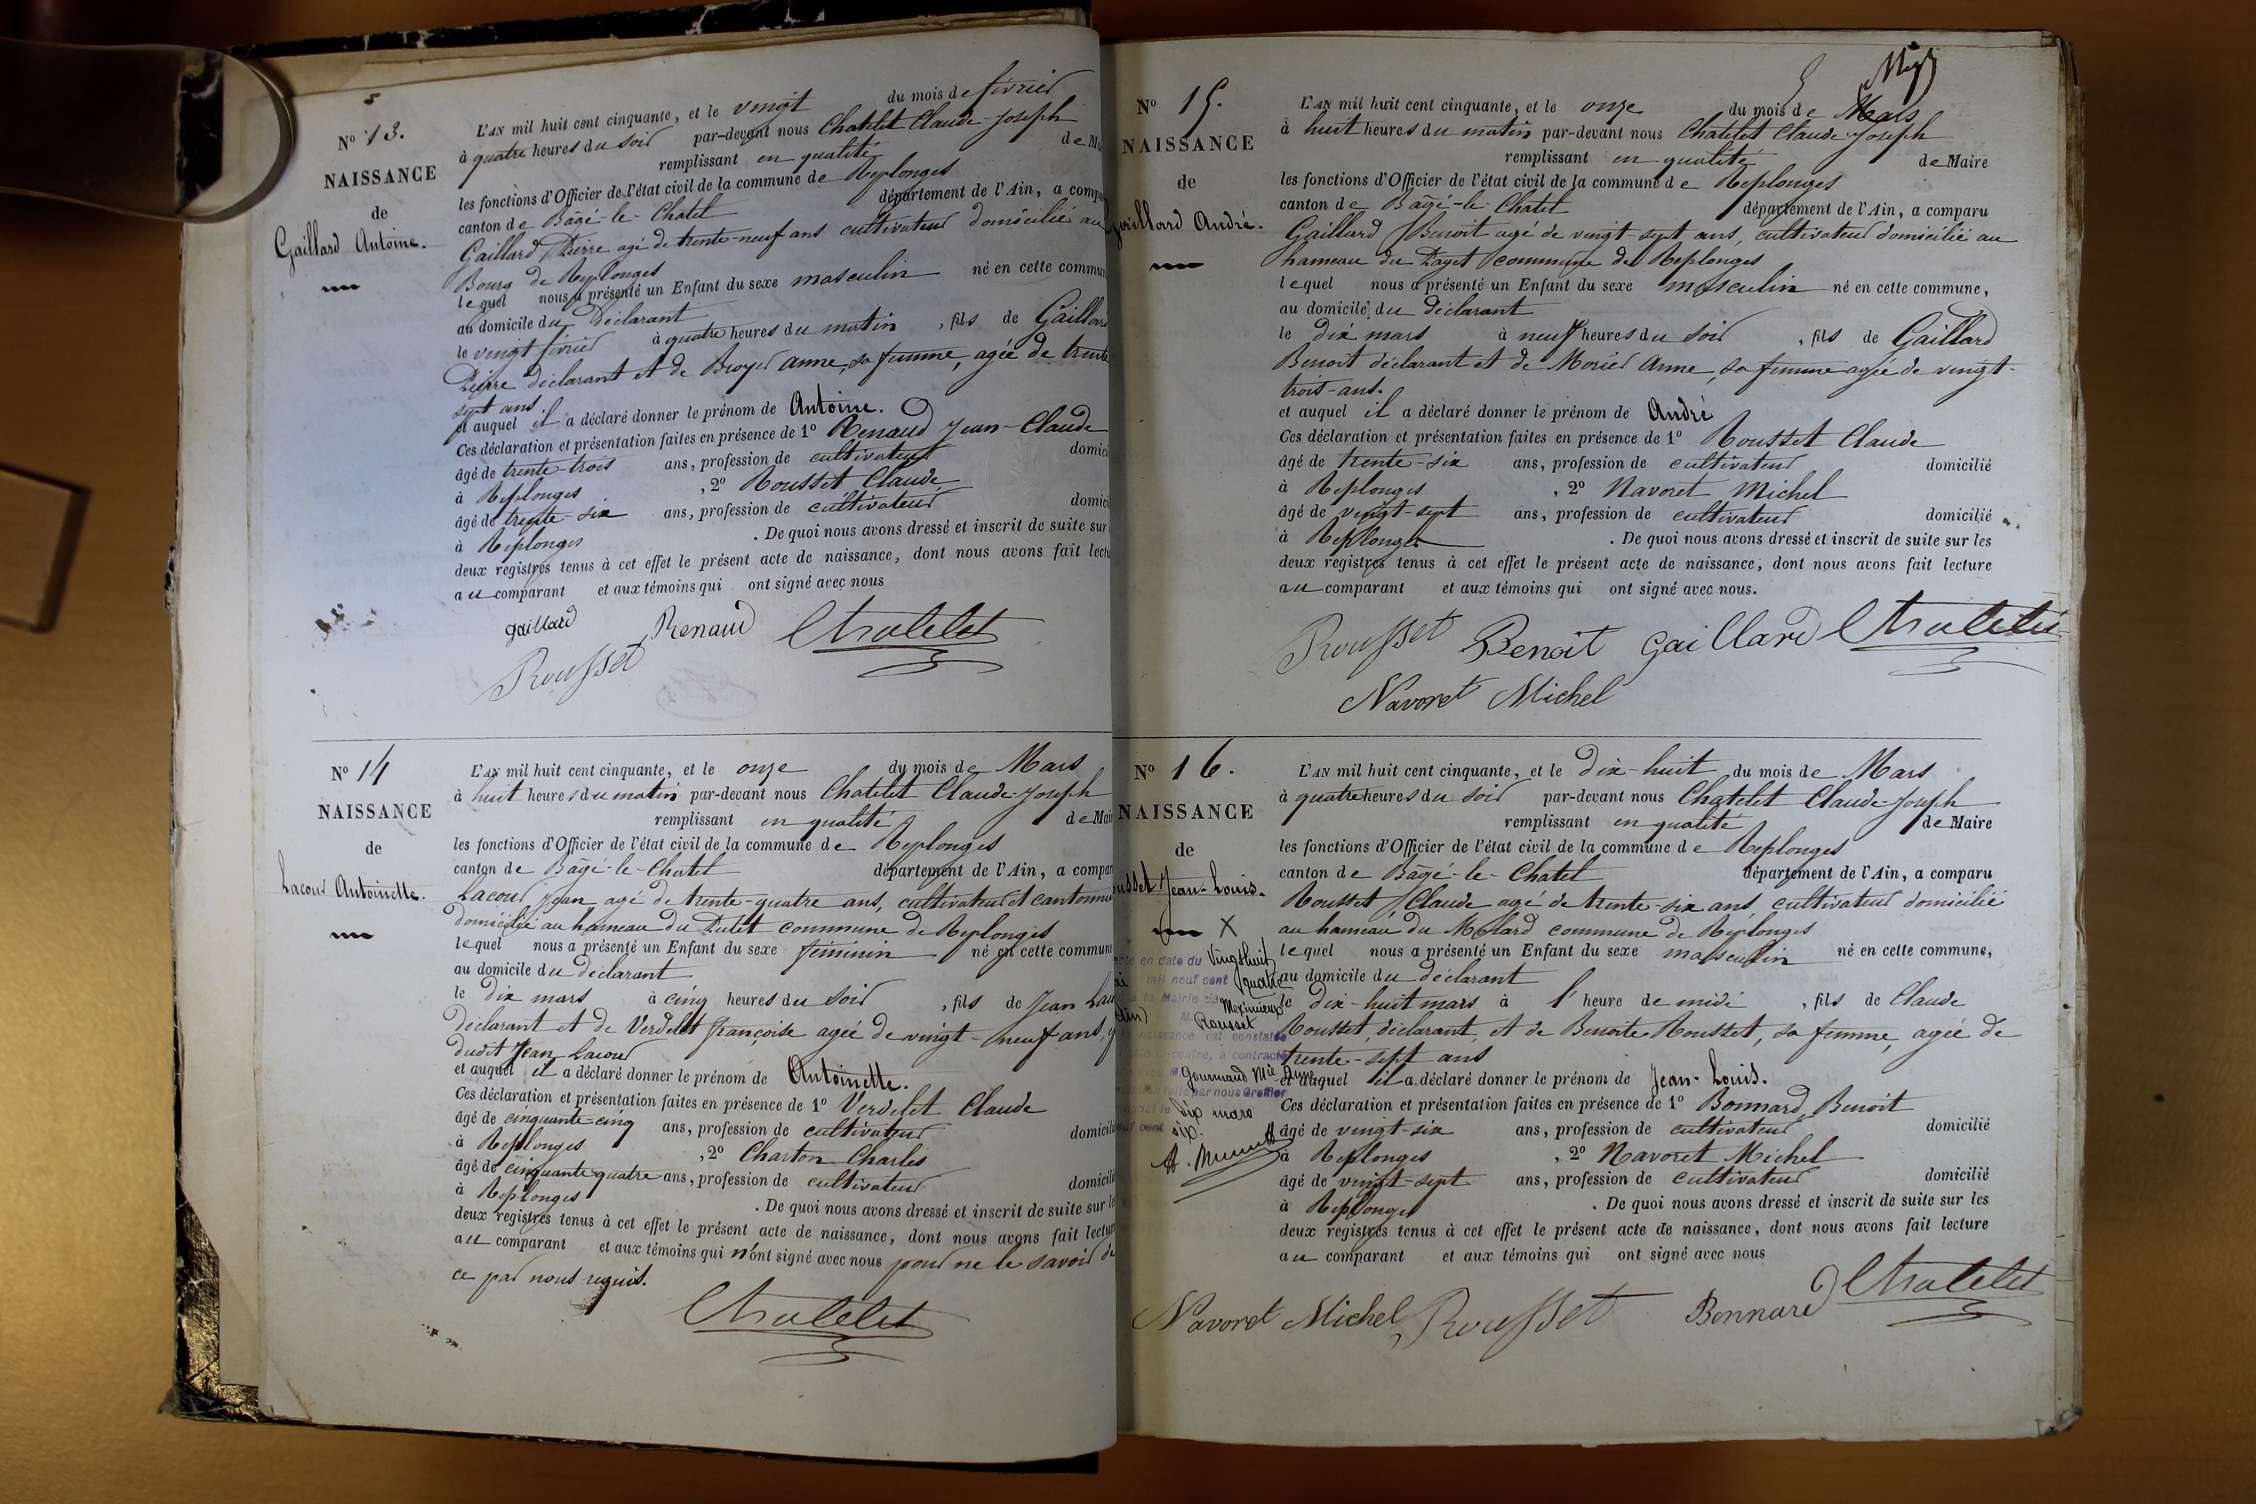 N° 13.
NAISSANCE
de
Gaillard Antoine.
L'AN mil huit cent cinquante, et le vingt du mois de février
à quatre heures du soir par-devant nous Chatelet Claude-Joseph
remplissant en qualité de
les fonctions d'Officier de l'état civil de la commune de Replonges
canton de Bâgé-le-Chatel département de l'Ain, a
Gaillard Pierre agé de trente-neuf ans cultivateur domicilié au
Bourg de Replonges
lequel nous a présenté un Enfant du sexe masculin né en cette
au domicile du déclarant
le vingt février à quatre heures du matin, fils de Gaillard
Pierre déclarant et de Broyer Anne, sa femme, agée de trente
sept ans.
et auquel il a déclaré donner le prénom de Antoine.
Ces déclaration et présentation faites en présence de 1° Renaud Jean-Claude
âgé de trente-trois ans, profession de cultivateur
à Replonges, 2° Rousset Claude
âgé de trente-six ans, profession de cultivateur
à Replonges. De quoi nous avons dressé et inscrit de suite sur
deux registres tenus à cet effet le présent acte de naissance, dont nous avons fait
au comparant et aux témoins qui ont signé avec nous
gaillard Renaud Chatelet
Rousset
N° 14
NAISSANCE
de
Lacour Antoinette.
L'AN mil huit cent cinquante, et le onze du mois de Mars
à huit heures du matin par-devant nous Chatelet Claude-Joseph
remplissant en qualité de
les fonctions d'Officier de l'état civil de la commune de Replonges
canton de Bâgé-le-Chatel département de l'Ain, a
Lacour Jean agé de trente-quatre ans, cultivateur et
domicilié au hameau du commune de Replonges
lequel nous a présenté un Enfant du sexe féminin né en cette commune
au domicile du déclarant
le dix mars à cinq heures du soir, fils de Jean
déclarant et de Verdelet françoise agée de vingt-neuf ans,
dudit Jean Lacour
et auquel il a déclaré donner le prénom de Antoinette.
Ces déclaration et présentation faites en présence de 1° Verdelet Claude
âgé de cinquante-cinq ans, profession de cultivateur
à Replonges, 2° Charton Charles
âgé de cinquante-quatre ans, profession de cultivateur
à Replonges. De quoi nous avons dressé et inscrit de suite sur
deux registres tenus à cet effet le présent acte de naissance, dont nous avons fait
au comparant et aux témoins qui n'ont signé avec nous pour ne le savoir de
ce par nous requis.
Chatelet
N° 15.
NAISSANCE
de
Gaillard André.
L'AN mil huit cent cinquante, et le onze du mois de Mars
à huit heures du matin par-devant nous Chatelet Claude-Joseph
remplissant en qualité de Maire
les fonctions d'Officier de l'état civil de la commune de Replonges
canton de Bâgé-le-Chatel département de l'Ain, a comparu
Gaillard Benoit agé de vingt-sept ans, cultivateur domicilié au
hameau du commune de Replonges
lequel nous a présenté un Enfant du sexe masculin né en cette commune,
au domicile du déclarant
le dix mars à neuf heures du soir, fils de Gaillard
Benoit déclarant et de Morier Anne, sa femme agée de vingt-
trois-ans.
et auquel il a déclaré donner le prénom de André
Ces déclaration et présentation faites en présence de 1° Rousset Claude
âgé de trente-six ans, profession de cultivateur domicilié
à Replonges, 2° Navoret Michel
âgé de vingt-sept ans, profession de cultivateur domicilié
à Replonges. De quoi nous avons dressé et inscrit de suite sur les
deux registres tenus à cet effet le présent acte de naissance, dont nous avons fait lecture
au comparant et aux témoins qui ont signé avec nous.
Rousset Benoit gaillard Chatelet
Navoret Michel
N° 16.
NAISSANCE
de
Jean-Louis.
X
en date du Vingt huit
mil neuf cent quatre
Meximieux
Rousset
constatée
ci-contre, a contracté
Gourmand Mie Anne
par nous Greffier
dix mars
six.
L'AN mil huit cent cinquante, et le dix-huit du mois de Mars
à quatre heures du soir par-devant nous Chatelet Claude-Joseph
remplissant en qualité de Maire
les fonctions d'Officier de l'état civil de la commune de Replonges
canton de Bâgé-le-Chatel département de l'Ain, a comparu
Rousset Claude agé de trente-six ans cultivateur domicilié
au hameau du Molard commune de Replonges
lequel nous a présenté un Enfant du sexe masculin né en cette commune,
au domicile du déclarant
le dix-huit mars à l'heure de midi, fils de Claude
Rousset, déclarant, et de Benoite Rousset, sa femme, agée de
trente-sept ans
et auquel il a déclaré donner le prénom de Jean-Louis.
Ces déclaration et présentation faites en présence de 1° Bonnard Benoit
âgé de vingt-six ans, profession de cultivateur domicilié
à Replonges, 2° Navoret Michel
âgé de vingt-sept ans, profession de cultivateur domicilié
à Replonges. De quoi nous avons dressé et inscrit de suite sur les
deux registres tenus à cet effet le présent acte de naissance, dont nous avons fait lecture
au comparant et aux témoins qui ont signé avec nous
Navoret Michel Rousset Bonnard Chatelet